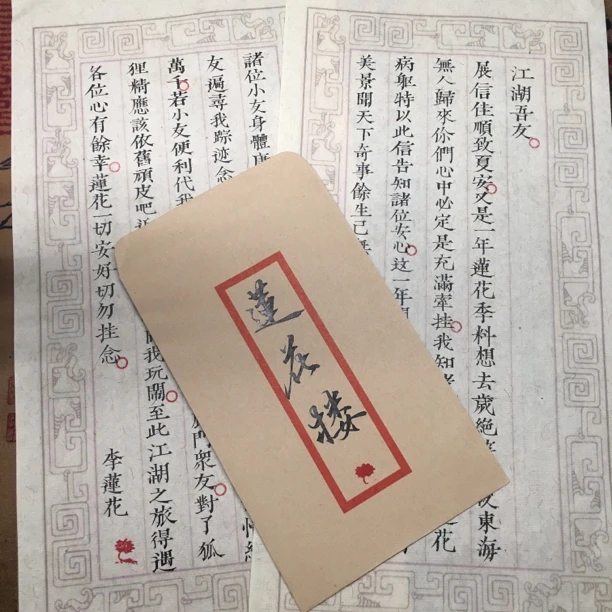 江湖吾友
展信佳順致夏安又是一年蓮花季料想去歲絕東海
無人歸來你們心中必定是充滿牽挂我知花
病軀特以此信告知諸位安心这一年
美景聞天下奇事餘生已
諸位小友身體
友遍尋我踪迹念
萬千若小友便利代我門眾友對了狐
狸精應該依舊頑皮吧我玩鬧至此江湖之旅得遇
各位心有餘幸蓮花一切安好切勿挂念
李蓮花
蓮花楼